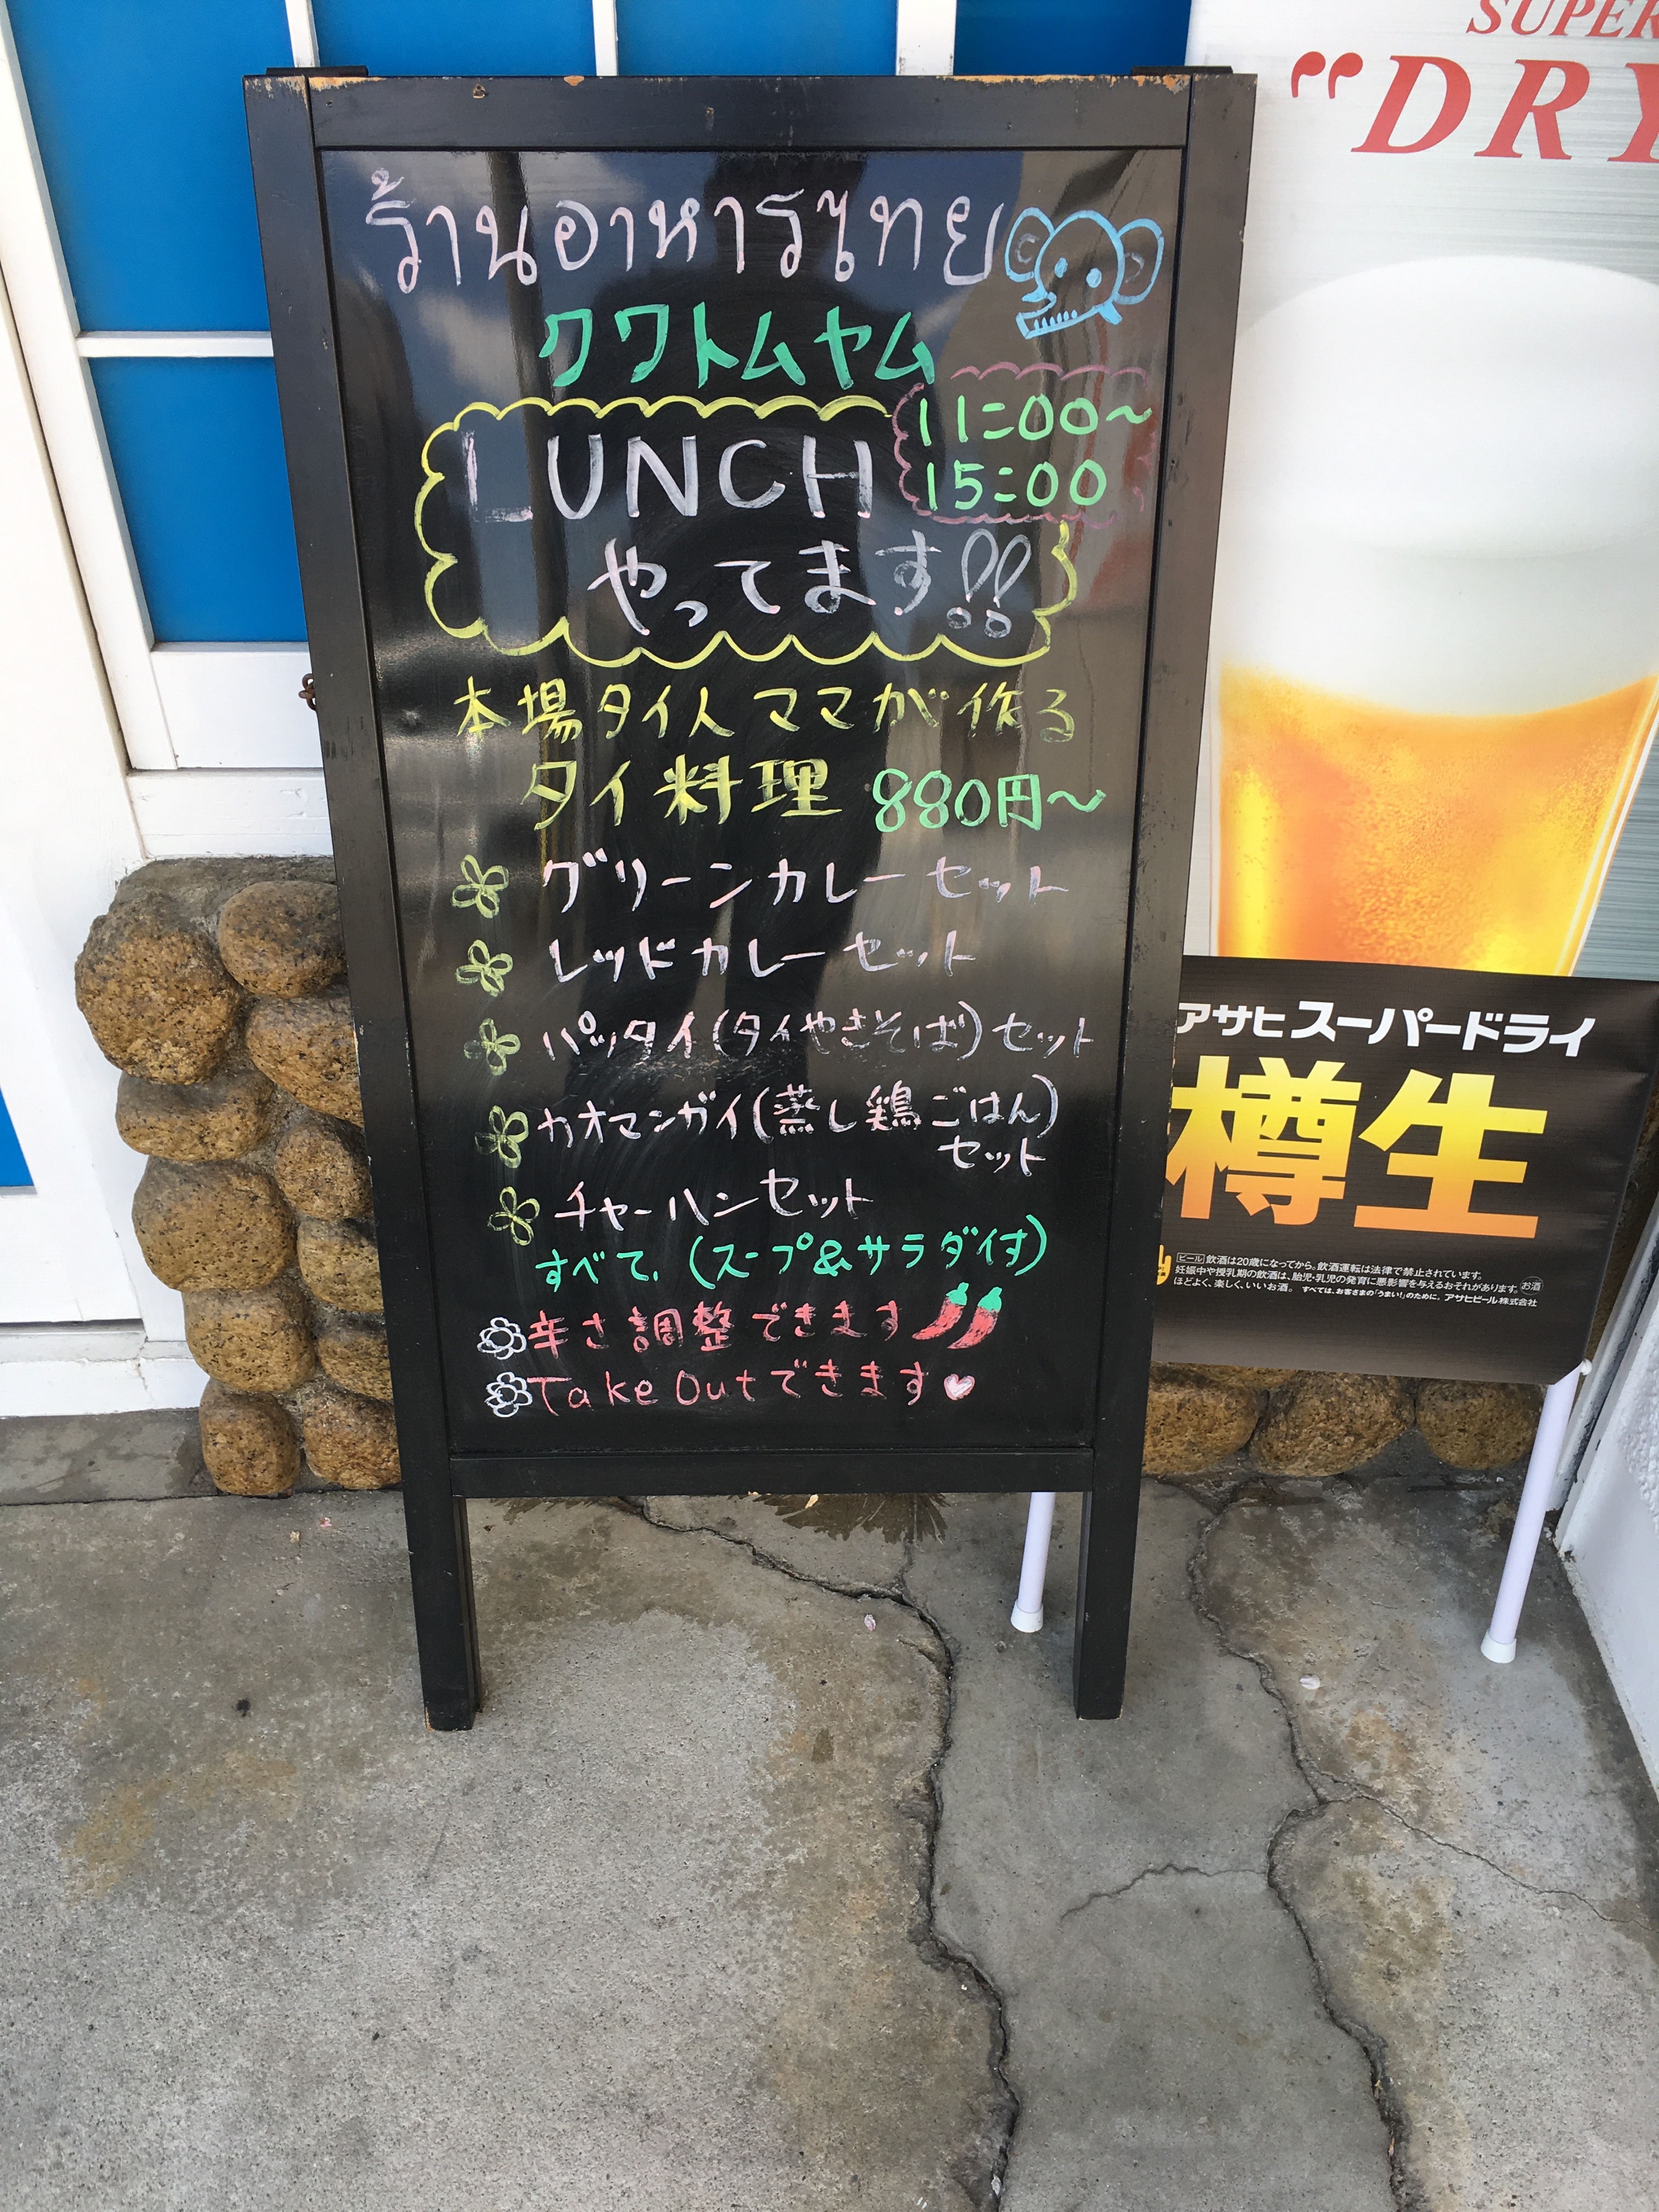 ร้านอาหารไทย
クワトムヤム
LUNCH
11:00～
15:00
やってます!!
本場タイ人ママが作る
タイ料理 880円～
グリーンカレーセット
レッドカレーセット
パッタイ(タイやきそば)セット
カオマンガイ(蒸し鶏ごはん)
セット
チャーハンセット
すべて、(スープ&サラダ付)
辛さ調整できます
Take Outできます
SUPER
"DRY
アサヒスーパードライ
樽生
ビール 飲酒は20歳になってから。飲酒運転は法律で禁止されています。
妊娠中や授乳期の飲酒は、胎児・乳児の発育に悪影響を与えるおそれがあります。 お酒
ほどよく、楽しく、いいお酒。 すべては、お客さまの「うまい!」のために。 アサヒビール株式会社